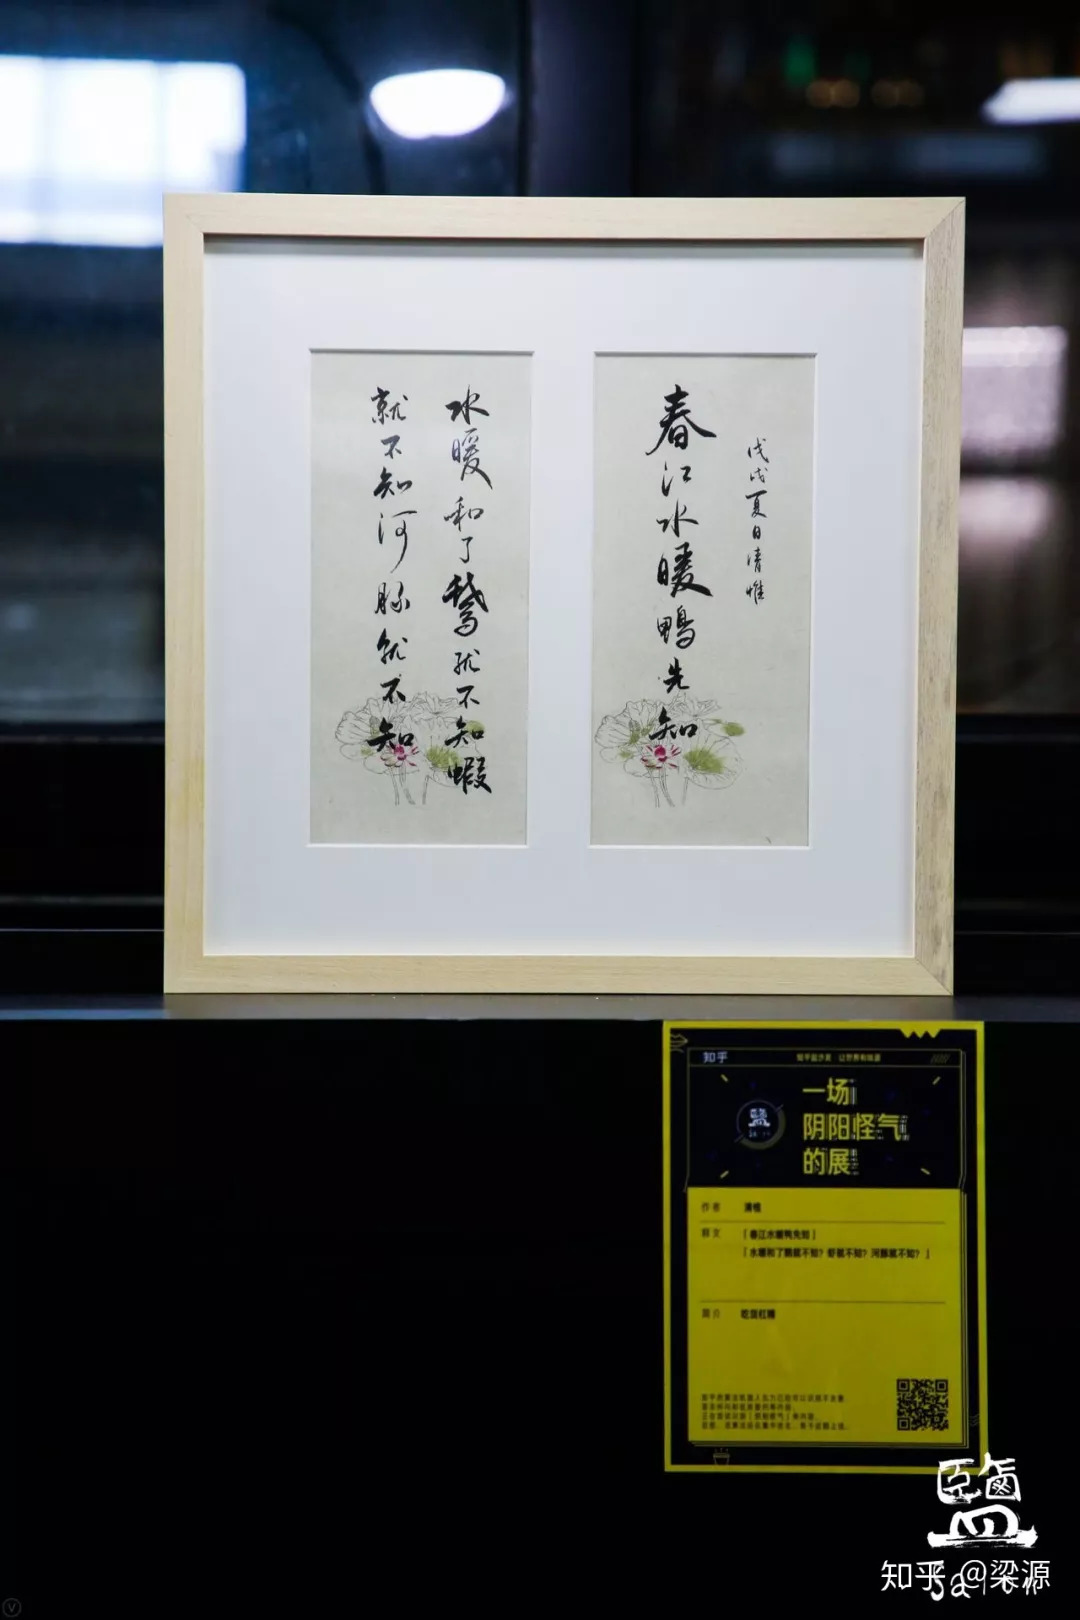 戊戌夏日清惟
春江水暖鸭先知
水暖和了鹅就不知蝦
就不知河豚就不知
知乎
知乎盐沙龙 让世界有味道
一场
阴阳怪气
的展
鹽
作者 清惟
释文 「春江水暖鸭先知」
「水暖和了鹅就不知？虾就不知？河豚就不知？」
简介
鹽
Salon
知乎 @梁源